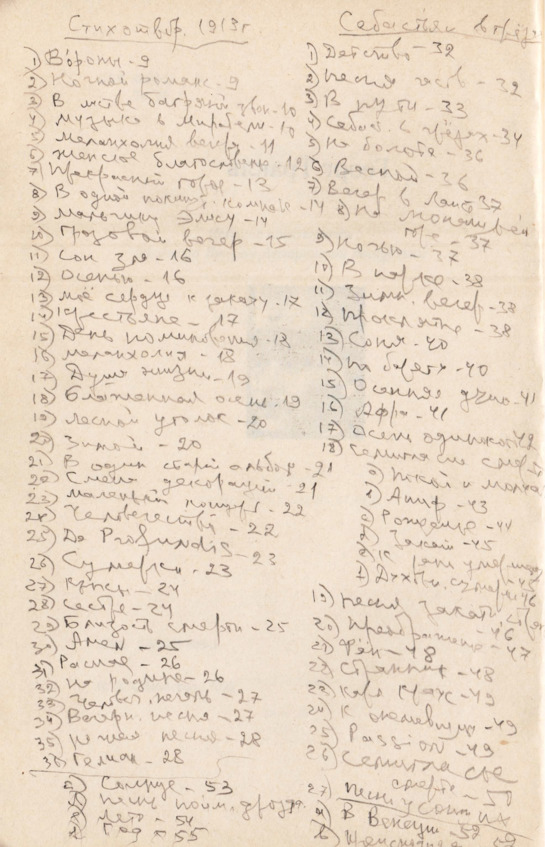 Стихотвор. 1913 г
1) Во́роны - 9
2) Ночной романс - 9
3) В листве багряной звон - 10
4) Музыка в Мирабель - 10
5) меланхолия вечера - 11
6) женское благословение - 12
7) Прекрасный город - 13
8) В одной покинут. комнате - 14
9) мальчику Элису - 14
10) Грозовой вечер - 15
11) Сон зла - 16
12) Осенью - 16
13) моё сердце к закату - 17
14) Крестьяне - 17
15) День поминовения - 18
16) меланхолия - 18
17) Душа жизни - 19
18) Блаженная осень - 19
19) лесной уголок - 20
20) Зимой - 20
21) В один старый альбом - 21
22) Смена декораций - 21
23) маленький концерт - 22
24) Человечество - 22
25) De Profundis - 23
26) Сумерки - 23
27) Крысы - 24
28) сестре - 24
29) Близость смерти - 25
30) Амен - 25
31) Распад - 26
32) на родине - 26
33) Червл. печаль - 27
34) Вечерн. песня - 27
35) ночная песня - 28
36) Гелиан - 28
Солнце - 53
песнь пойм. дрозда
лето - 54
Год - 55
Себастьян в грёзах
1) Детство - 32
2) песня часов - 32
3) В пути - 33
4) Себаст. в грёзах - 34
5) на болоте - 36
6) Весной - 36
7) Вечер в Лансе 37
8) На монашьей
горе - 37
9) Ночью - 37
10) В парке - 38
11) Зимн. вечер - 38
12) Проклятые - 38
13) Соня - 40
14) на берегу - 40
15) Осенняя душа - 41
16) Афра - 41
17) Осень одинокого 42
18) семигласие смерти
Покой и молчание
Аниф - 43
Рождение - 44
Закат - 45
К рано умершему
Духовн. сумерки 46
19) песня закатн. страны
- 46
20) преображение - 47
21) Фён - 48
22) странник - 48
23) Карл Краус - 49
24) К онемевшим - 49
25) Passion - 49
26) Семигласие
смерти - 50
27) песни усопших
В Венеции - 52